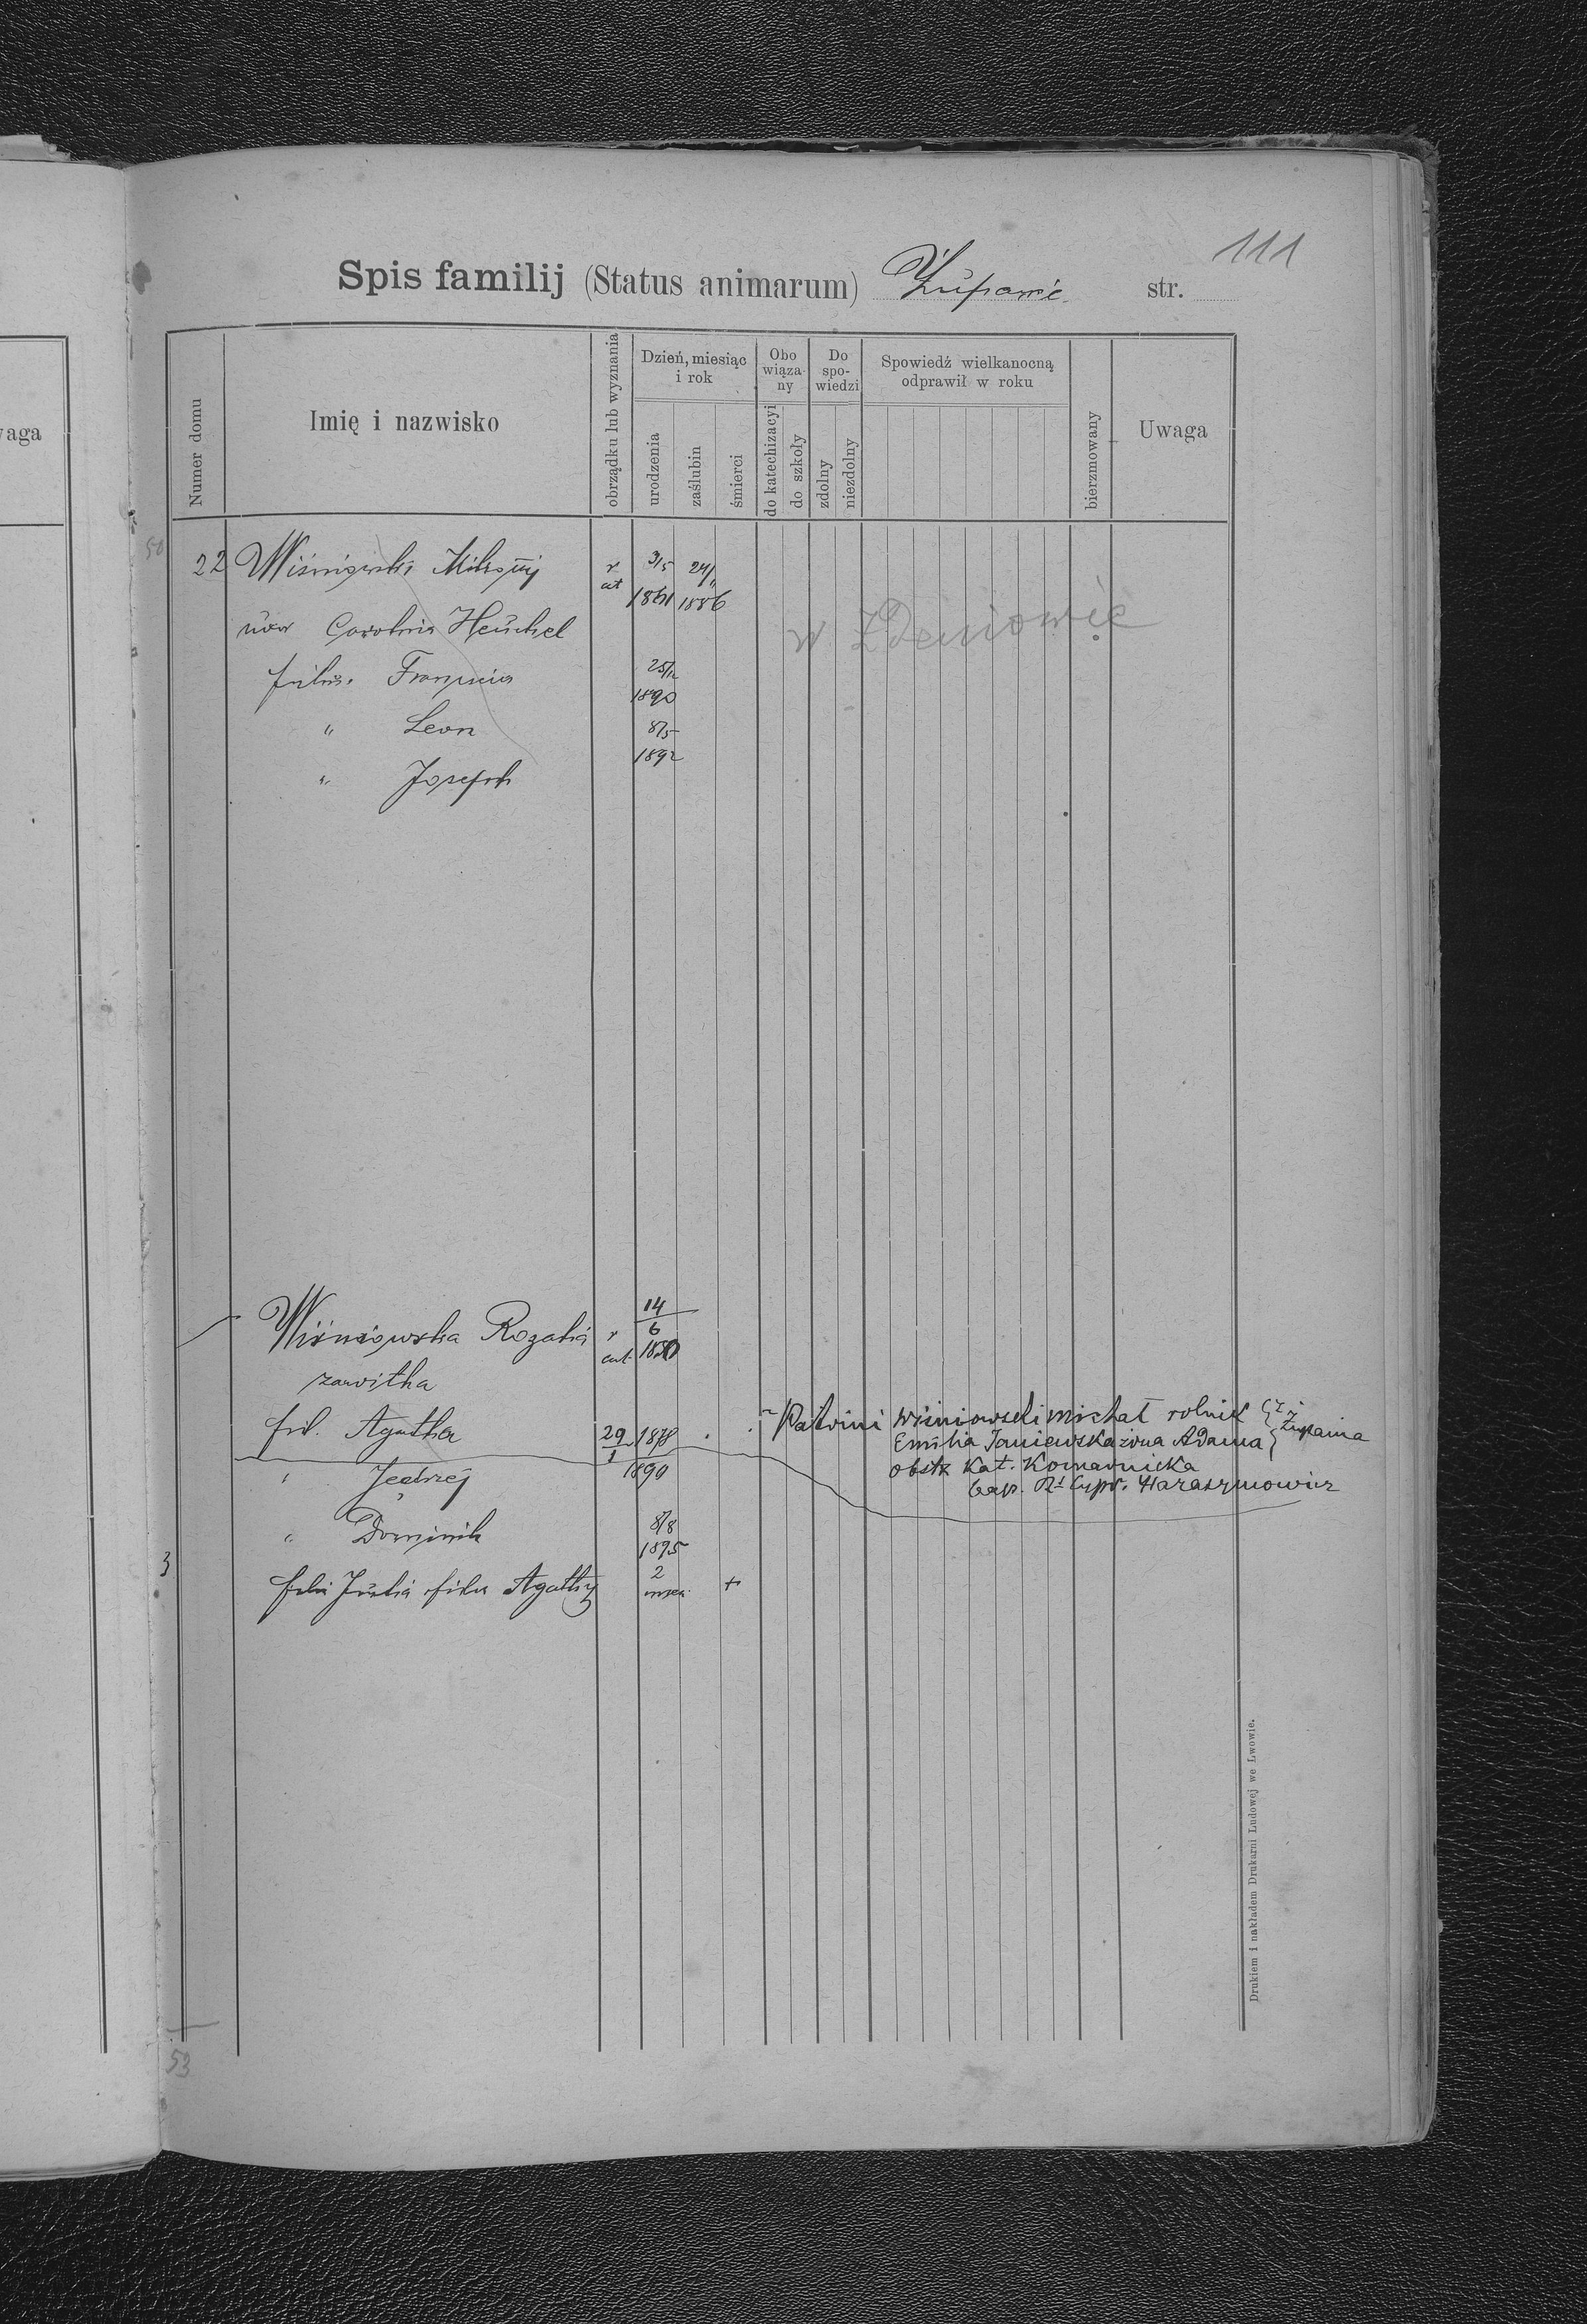 111
Spis familij (Status animarum) Żupanie str.
Numer domu
Imię i nazwisko
obrządku lub wyznania
Dzień, miesiąc i rok
urodzenia
zaślubin
śmierci
Obowiąza-ny
do katechizacyi
do szkoły
Do spo-wiedzi
zdolny
niezdolny
Spowiedź wielkanocną odprawił w roku
bierzmowany
Uwaga
vaga
50
22 Wiśniowski Mikołaj r cat 3/5 1861 24/11 1886
uxor Carolina Heuchel
w Zdeniowie
filius Franciscus 25/12 1890
" Leon 8/5 1892
" Joseph
Wiśniowska Rozalia r cat. 14/6 1850
zarvitka
fil. Agatha 29/1 1878
Patrini Wiśniowski Michał rolnik z Żupania
Emilia Janiewska żona Adama
obstx Kat. Komarnicka
bap. Rs Cypr. Haraszmowicz
" Jędrzej 1890
" Dominik 8/8 1895
3
filia Julia filia Agathy 2 +
53
Drukiem i nakładem Drukarni Ludowej we Lwowie.